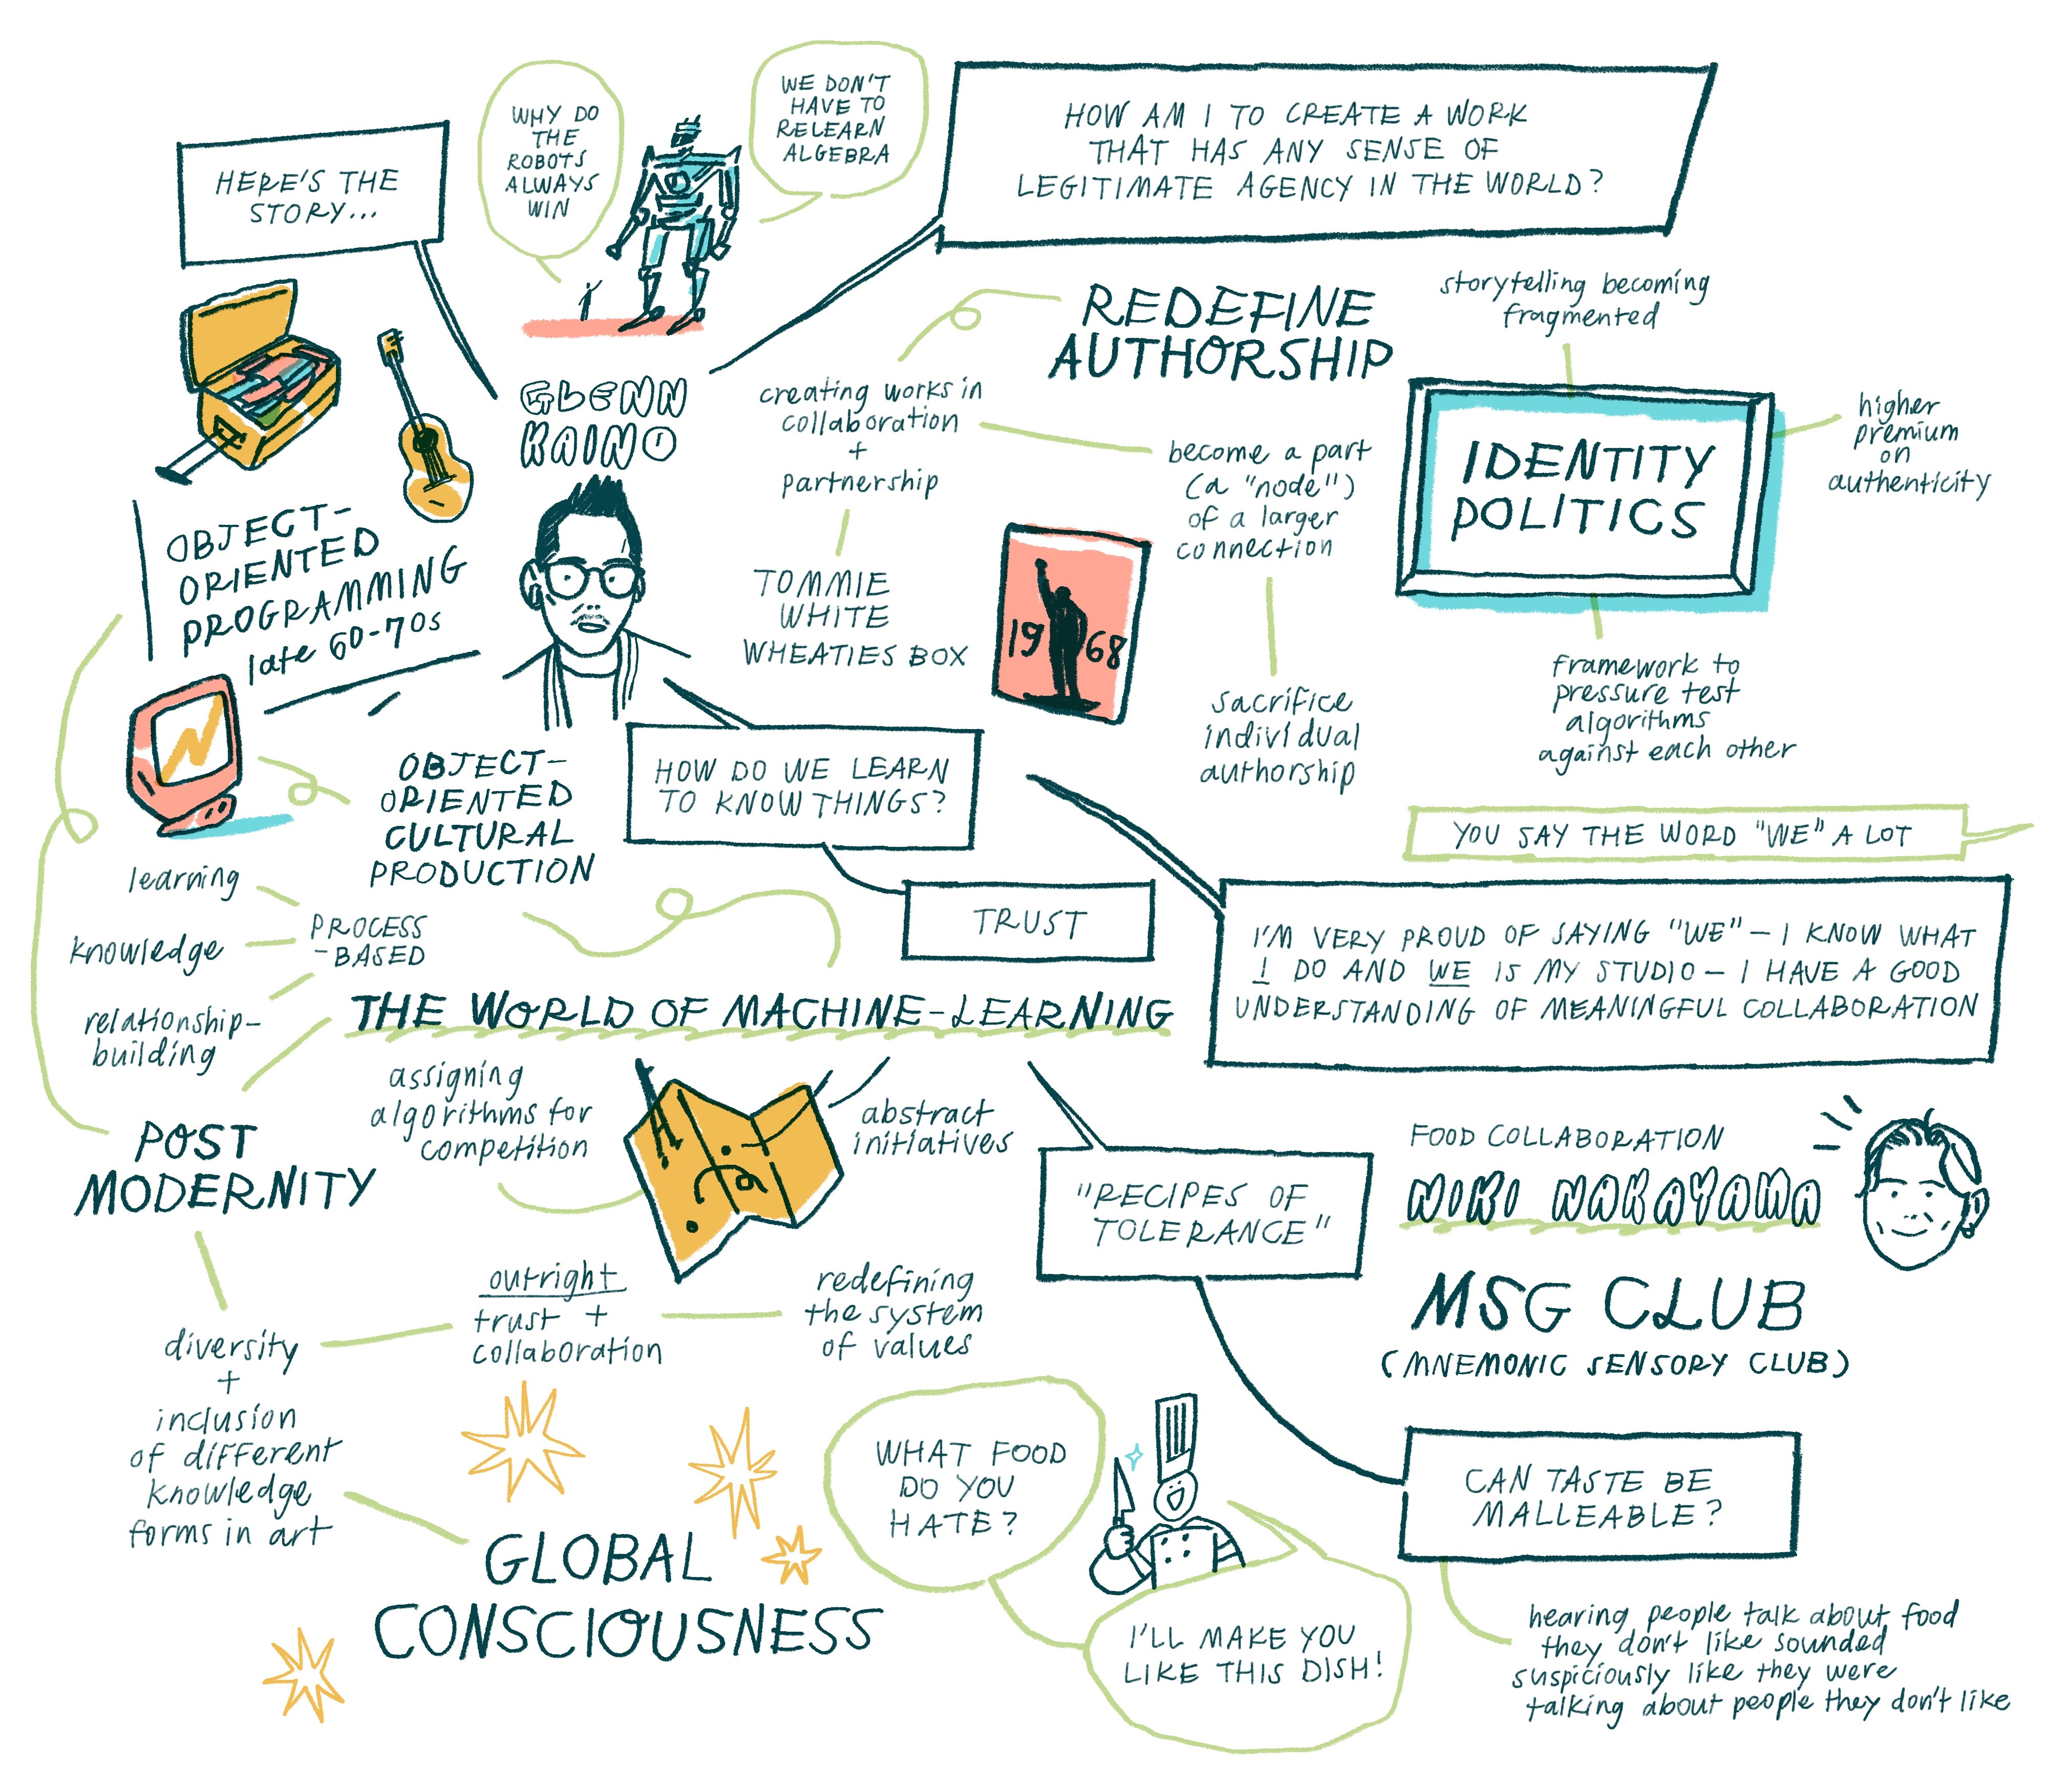 HERE'S THE
STORY...
WHY DO
THE
ROBOTS
ALWAYS
WIN
WE DON'T
HAVE TO
RELEARN
ALGEBRA
HOW AM I TO CREATE A WORK
THAT HAS ANY SENSE OF
LEGITIMATE AGENCY IN THE WORLD?
GLENN
KAINO
REDEFINE
AUTHORSHIP
storytelling becoming
fragmented
creating works in
collaboration
+
partnership
become a part
(a "node")
of a larger
connection
IDENTITY
POLITICS
higher
premium
on
authenticity
OBJECT-
ORIENTED
PROGRAMMING
late 60-70s
TOMMIE
WHITE
WHEATIES BOX
19 68
sacrifice
individual
authorship
framework to
pressure test
algorithms
against each other
OBJECT-
ORIENTED
CULTURAL
PRODUCTION
HOW DO WE LEARN
TO KNOW THINGS?
TRUST
YOU SAY THE WORD "WE" A LOT
I'M VERY PROUD OF SAYING "WE" – I KNOW WHAT
I DO AND WE IS MY STUDIO – I HAVE A GOOD
UNDERSTANDING OF MEANINGFUL COLLABORATION
learning
knowledge
relationship-
building
PROCESS
-BASED
THE WORLD OF MACHINE-LEARNING
assigning
algorithms for
competition
abstract
initiatives
POST
MODERNITY
"RECIPES OF
TOLERANCE"
FOOD COLLABORATION
NIKI NAKAYAMA
MSG CLUB
(MNEMONIC SENSORY CLUB)
diversity
+
inclusion
of different
knowledge
forms in art
outright
trust +
collaboration
redefining
the system
of values
GLOBAL
CONSCIOUSNESS
WHAT FOOD
DO YOU
HATE?
I'LL MAKE YOU
LIKE THIS DISH!
CAN TASTE BE
MALLEABLE?
hearing people talk about food
they don't like sounded
suspiciously like they were
talking about people they don't like